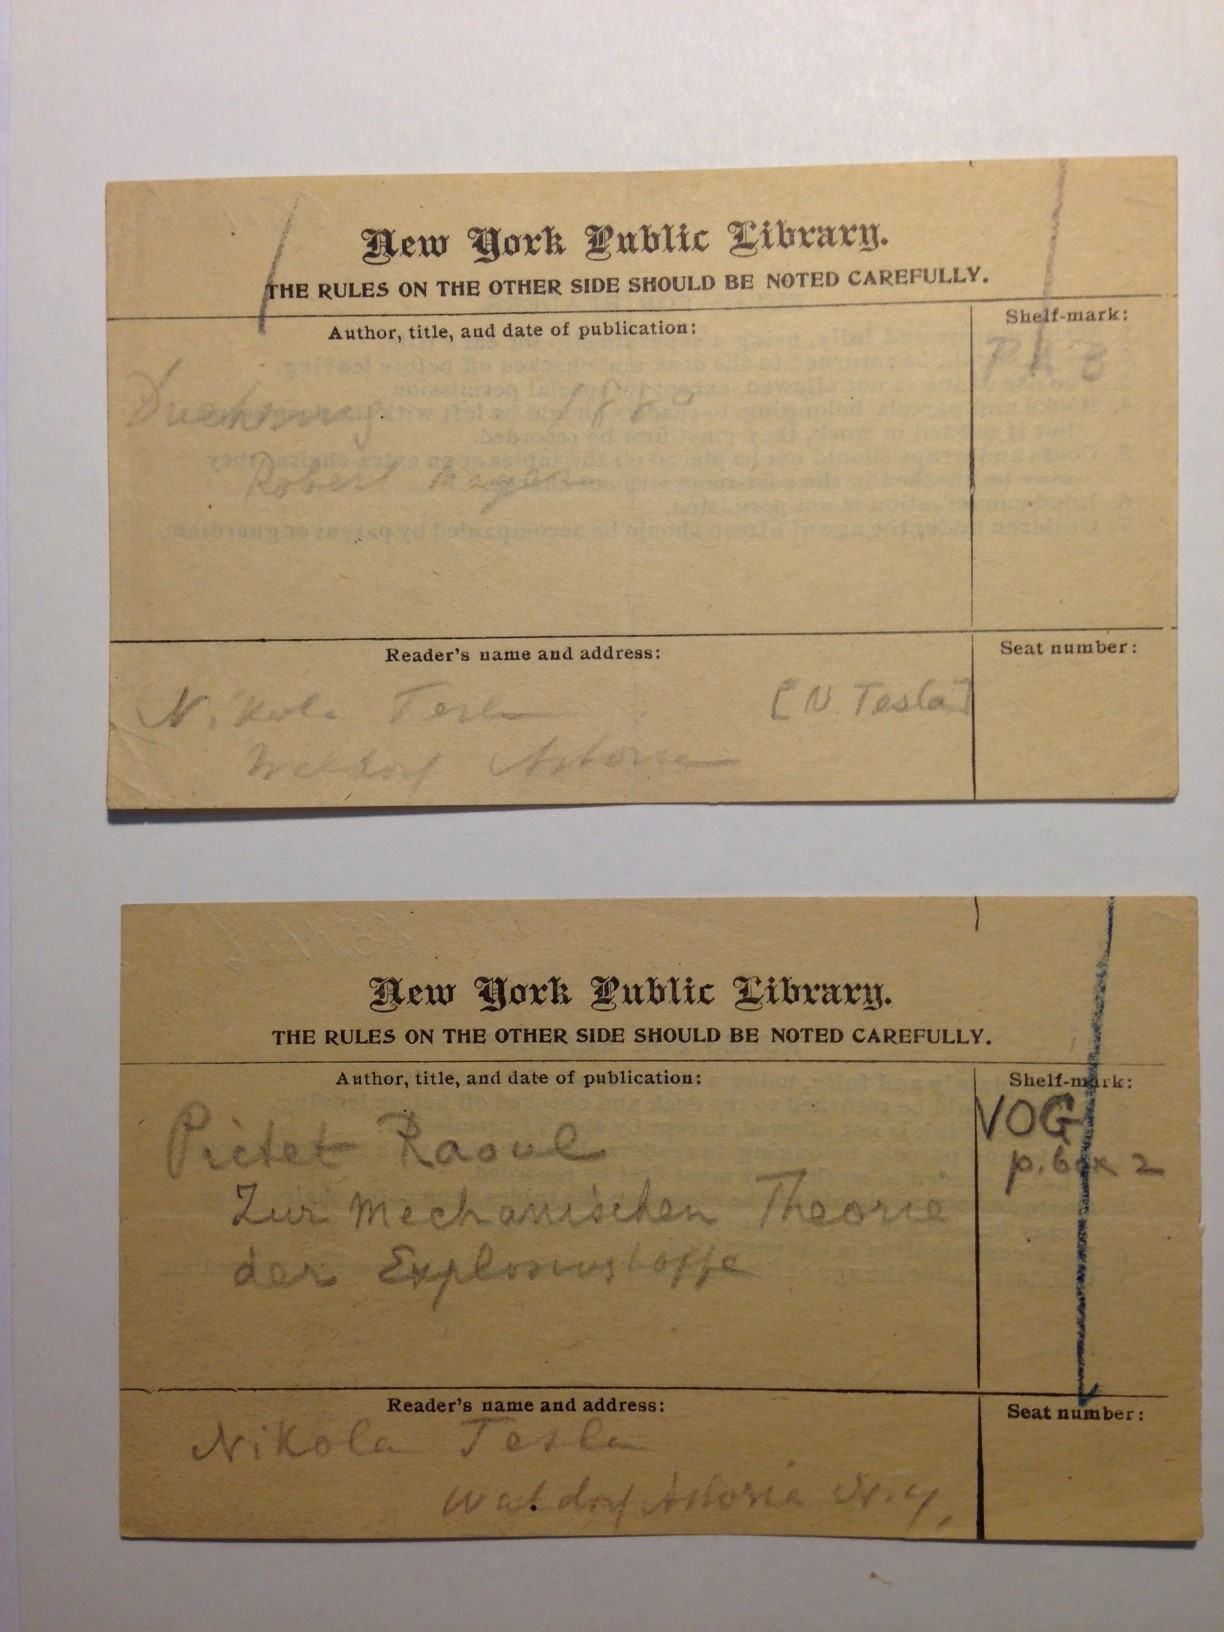 New York Public Library.
THE RULES ON THE OTHER SIDE SHOULD BE NOTED CAREFULLY.
Author, title, and date of publication:
Shelf-mark:
Robert Mayer
Reader's name and address:
Seat number:
Nikola Tesla
[N Tesla]
Waldorf Astoria
New York Public Library.
THE RULES ON THE OTHER SIDE SHOULD BE NOTED CAREFULLY.
Author, title, and date of publication:
Shelf-mark:
Pictet Raoul
VOG
p. box 2
Zur Mechanischen Theorie
der Explosivstoffe
Reader's name and address:
Seat number:
Nikola Tesla
Waldorf Astoria N.Y.